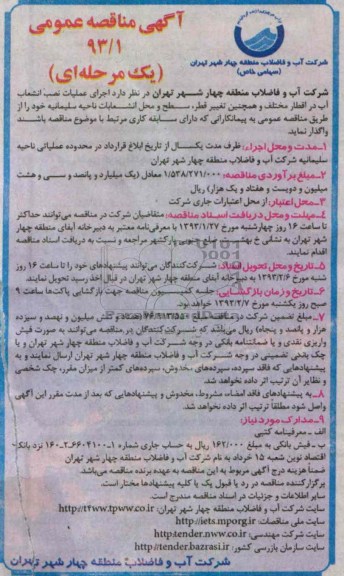 آگهی مناقصه عمومی
۹۳/۱
(یک مرحله‌ای)
شرکت آب و فاضلاب منطقه چهار شهر تهران
(سهامی خاص)
شرکت آب و فاضلاب منطقه چهار شهر تهران در نظر دارد اجرای عملیات نصب انشعاب
آب در اقطار مختلف و همچنین تغییر قطر، سطح و محل انشعابات ناحیه سلیمانیه خود را از
طریق مناقصه عمومی به پیمانکارانی که دارای سابقه کاری مرتبط با موضوع مناقصه باشند
واگذار نماید.
۱-مدت و محل اجراء: ظرف مدت یکسال از تاریخ ابلاغ قرارداد در محدوده عملیاتی ناحیه
سلیمانیه شرکت آب و فاضلاب منطقه چهار شهر تهران
۲-مبلغ برآوردی مناقصه: ۱/۵۳۸/۲۷۱/۰۰۰ معادل (یک میلیارد و پانصد و سی و هشت
میلیون و دویست و هفتاد و یک هزار) ریال
۳-محل اعتبار: از محل اعتبارات جاری شرکت
۴-مهلت و محل دریافت اسناد مناقصه: متقاضیان شرکت در مناقصه می‌توانند حداکثر
تا ساعت ۱۶ روز چهارشنبه مورخ ۱۳۹۳/۱/۲۷ با معرفی‌نامه معتبر به دبیرخانه آبفای منطقه چهار
شهر تهران به نشانی خ بهشتی مراجعه و نسبت به دریافت اسناد مناقصه
اقدام نمایند.
۵-تاریخ و محل تحویل اسناد: شرکت‌کنندگان می‌توانند پیشنهادهای خود را تا ساعت ۱۶ روز
شنبه مورخ ۱۳۹۳/۲/۶ به دبیرخانه آبفای منطقه چهار شهر تهران در قبال اخذ رسید تحویل نمایند.
۶-تاریخ و زمان بازگشایی: جلسه کمیسیون مناقصه جهت بازگشایی پاکت‌ها ساعت ۹
صبح روز یکشنبه مورخ ۱۳۹۳/۲/۷ خواهد بود.
۷-مبلغ تضمین شرکت در مناقصه مبلغ و شش میلیون و نهصد و سیزده
هزار و پانصد و پنجاه) ریال می‌باشد که شرکت‌کنندگان در مناقصه می‌توانند به صورت فیش
واریزی نقدی و یا ضمانتنامه بانکی در وجه شرکت آب و فاضلاب منطقه چهار شهر تهران و یا
چک بانکی تضمینی در وجه شرکت آب و فاضلاب منطقه چهار شهر تهران ارسال نمایند و به
پیشنهادهایی که فاقد سپرده، سپرده‌های مخدوش، سپرده‌های کمتر از میزان مقرر، چک شخصی
و نظایر آن ترتیب اثر داده نخواهد شد.
۸-به پیشنهادهای فاقد امضاء، مشروط، مخدوش و پیشنهادهایی که بعد از مدت مقرر این آگهی
واصل شود مطلقاً ترتیب اثر داده نخواهد شد.
۹-مدارک مورد نیاز:
الف-معرفینامه کتبی
ب-فیش بانکی به مبلغ ۱۶۲/۰۰۰ ریال به حساب جاری شماره ۱-۶۶۰۴۱۰۰-۲-۱۶۰ نزد بانک
اقتصاد نوین شعبه ۱۵ خرداد به نام شرکت آب و فاضلاب منطقه چهار شهر تهران
ضمناً هزینه درج آگهی مربوط به این مناقصه به عهده برنده مناقصه می‌باشد.
برگزارکننده مناقصه در رد یا قبول یک یا کلیه پیشنهادها مختار است.
سایر اطلاعات و جزئیات در اسناد مناقصه مندرج است.
سایت شرکت آب و فاضلاب منطقه چهار شهر تهران: http://t4ww.tpww.co.ir
سایت ملی مناقصات: http://iets.mporg.ir
سایت شرکت مهندسی: http:tender.nww.co.ir
سایت سازمان بازرسی کشور: http://tender.bazrasi.ir
شرکت آب و فاضلاب منطقه چهار شهر تهران